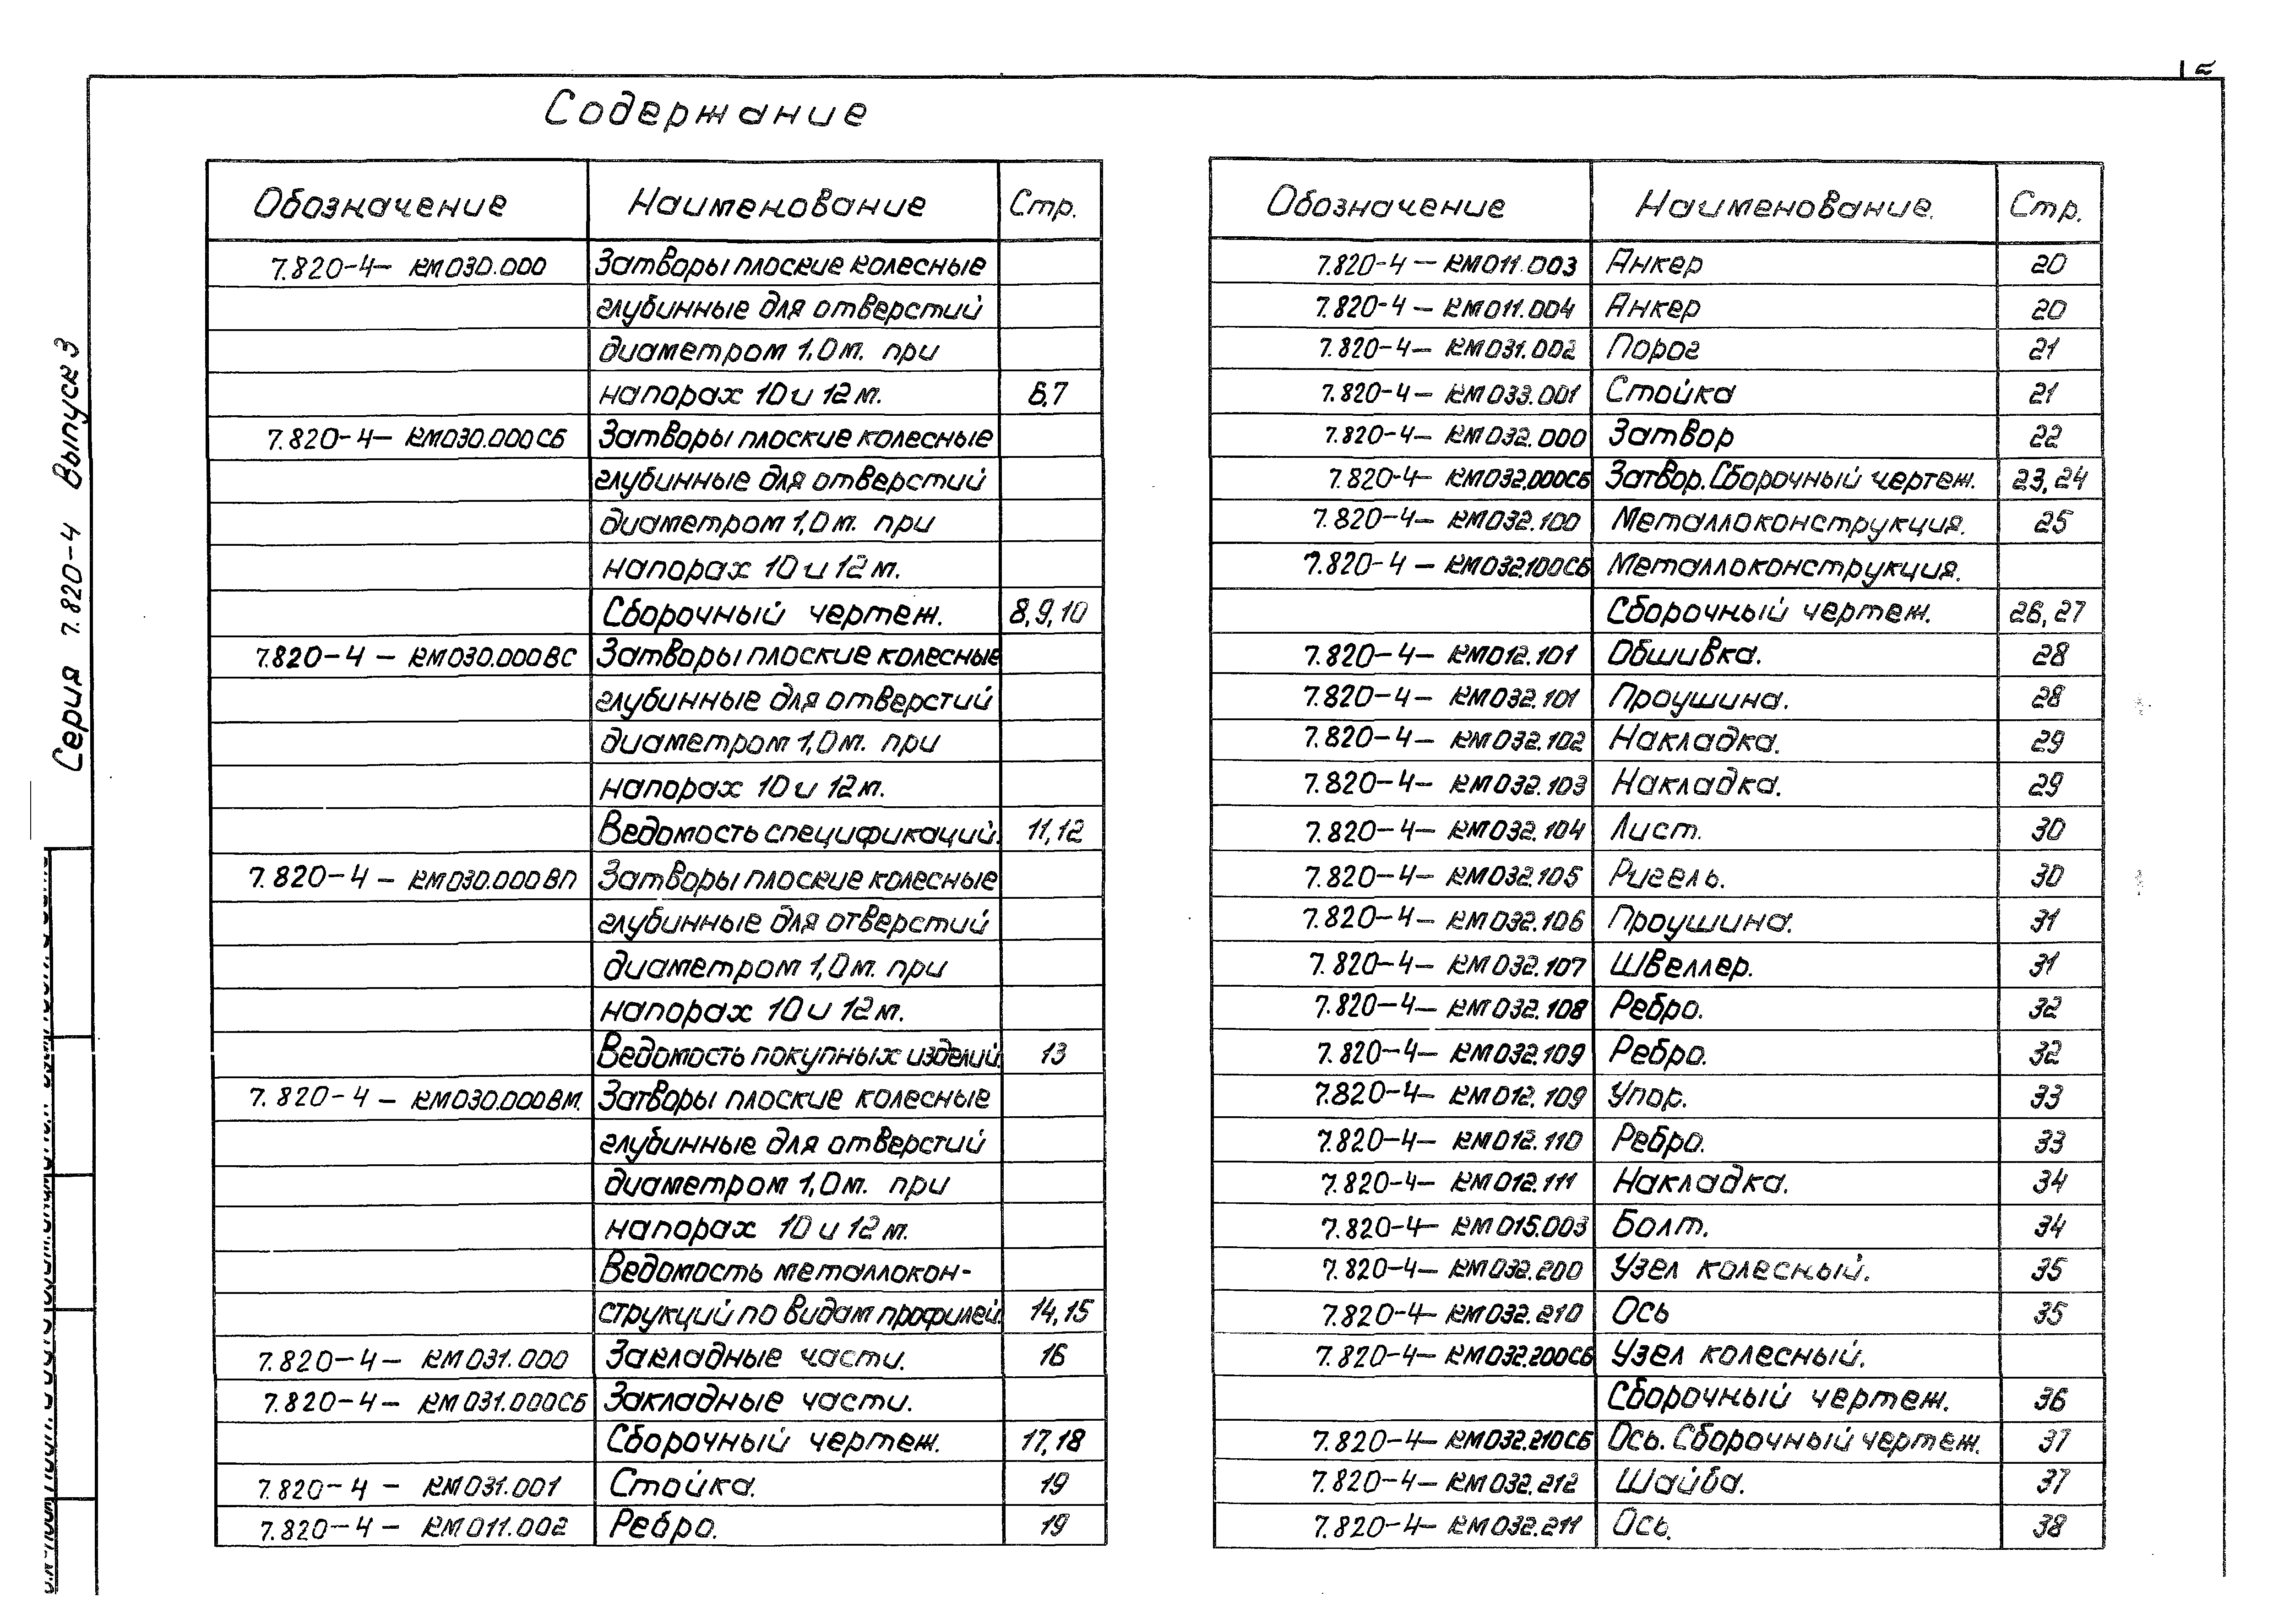 Содержание
Обозначение Наименование Стр.
7.820-4- КМ030.000 Затворы плоские колесные
глубинные для отверстий
диаметром 1,0м. при
напорах 10 и 12м. 6,7
7.820-4- КМ030.000СБ Затворы плоские колесные
глубинные для отверстий
диаметром 1,0м. при
напорах 10 и 12м.
Сборочный чертеж. 8,9,10
7.820-4 - КМ030.000ВС Затворы плоские колесные
глубинные для отверстий
диаметром 1,0м. при
напорах 10 и 12м.
Ведомость спецификаций. 11,12
7.820-4 - КМ030.000ВП Затворы плоские колесные
глубинные для отверстий
диаметром 1,0м. при
напорах 10 и 12м.
Ведомость покупных изделий. 13
7.820-4 - КМ030.000ВМ. Затворы плоские колесные
глубинные для отверстий
диаметром 1,0м. при
напорах 10 и 12м.
Ведомость металлокон-
струкций по видам профилей. 14,15
7.820-4- КМ031.000 Закладные части. 16
7.820-4- КМ031.000СБ Закладные части.
Сборочный чертеж. 17,18
7.820-4 - КМ031.001 Стойка. 19
7.820-4 - КМ011.002 Ребро. 19
Обозначение Наименование. Стр.
7.820-4 - КМ011.003 Анкер 20
7.820-4 - КМ011.004 Анкер 20
7.820-4- КМ031.002 Порог 21
7.820-4- КМ033.001 Стойка 21
7.820-4- КМ032.000 Затвор 22
7.820-4- КМ032.000СБ Затвор. Сборочный чертеж. 23,24
7.820-4- КМ032.100 Металлоконструкция. 25
7.820-4 - КМ032.100СБ Металлоконструкция.
Сборочный чертеж. 26,27
7.820-4- КМ012.101 Обшивка. 28
7.820-4- КМ032.101 Проушина. 28
7.820-4- КМ032.102 Накладка. 29
7.820-4- КМ032.103 Накладка. 29
7.820-4- КМ032.104 Лист. 30
7.820-4- КМ032.105 Ригель. 30
7.820-4- КМ032.106 Проушина. 31
7.820-4- КМ032.107 Швеллер. 31
7.820-4- КМ032.108 Ребро. 32
7.820-4- КМ032.109 Ребро. 32
7.820-4- КМ012.109 Упор. 33
7.820-4- КМ012.110 Ребро. 33
7.820-4- КМ012.111 Накладка. 34
7.820-4- КМ015.003 Болт. 34
7.820-4- КМ032.200 Узел колесный. 35
7.820-4- КМ032.210 Ось 35
7.820-4- КМ032.200СБ Узел колесный.
Сборочный чертеж. 36
7.820-4- КМ032.210СБ Ось. Сборочный чертеж. 37
7.820-4- КМ032.212 Шайба. 37
7.820-4- КМ032.211 Ось. 38
Серия 7.820-4 Выпуск 3